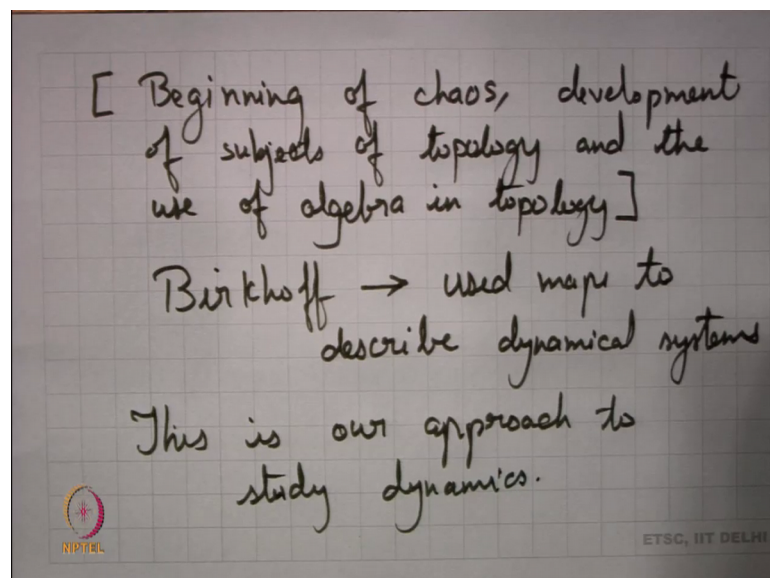 [ Beginning of chaos, development
of subjects of topology and the
use of algebra in topology]
Birkhoff → used maps to
describe dynamical systems
This is our approach to
study dynamics.
NPTEL
ETSC, IIT DELHI